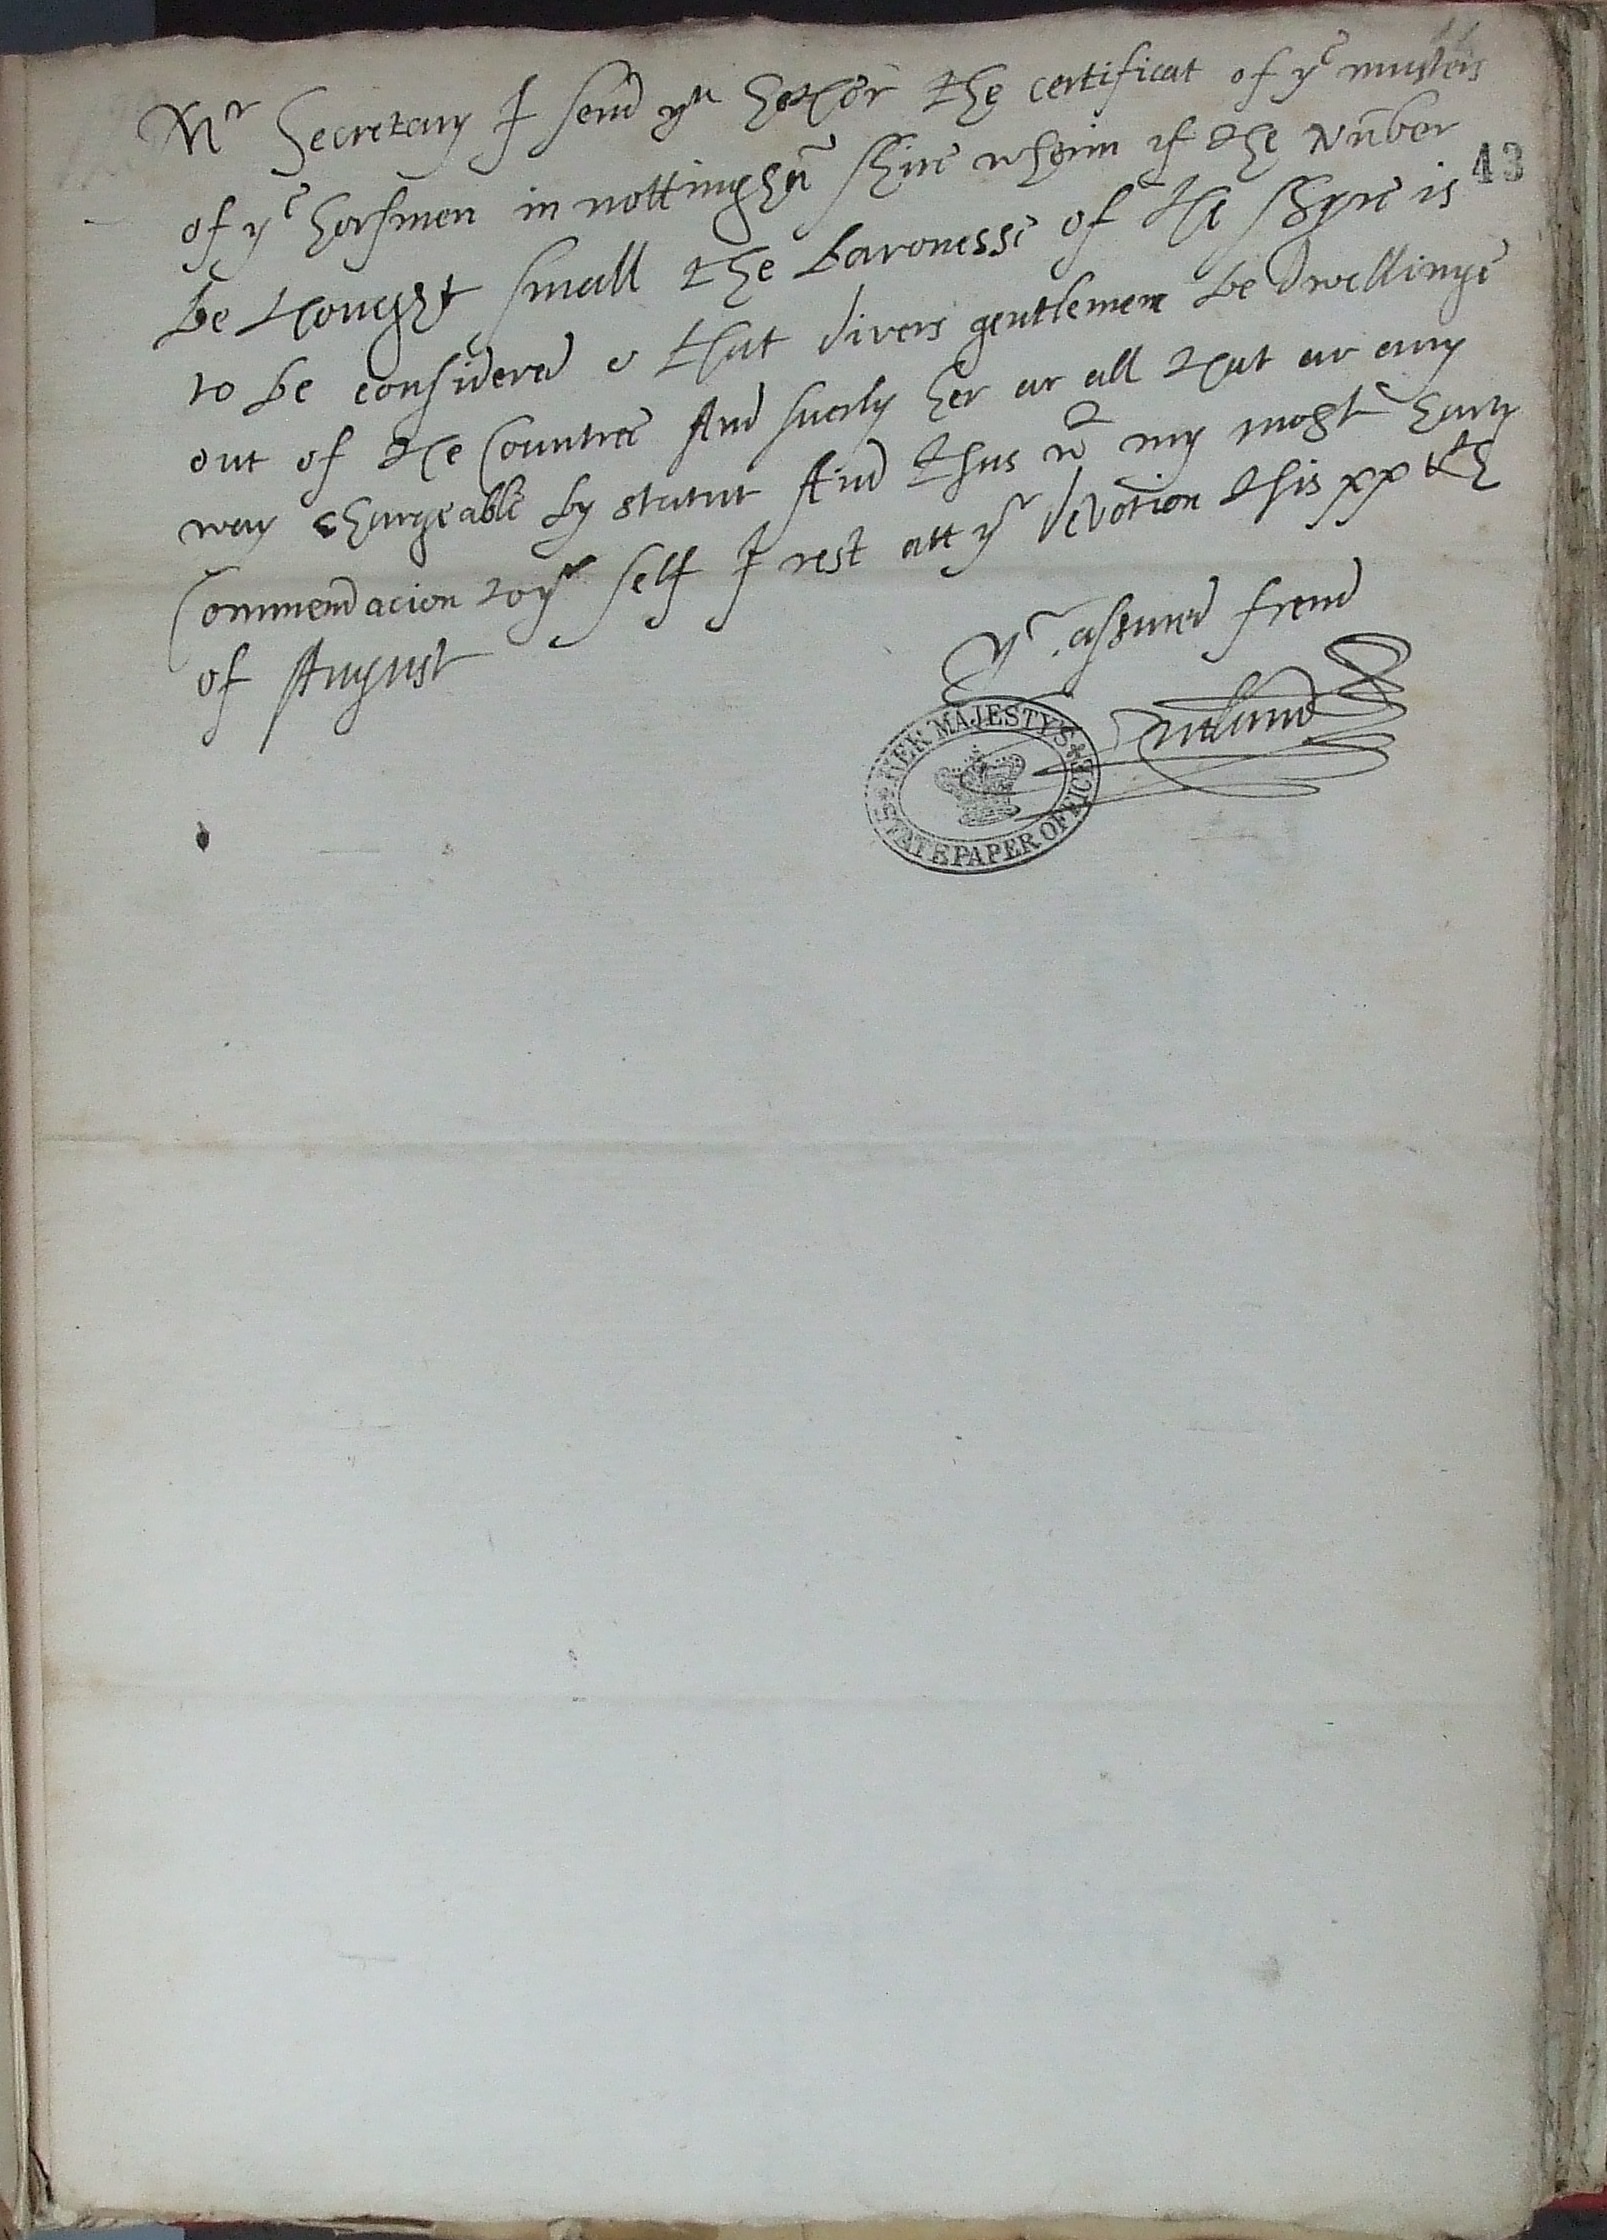 Mr Secretary I send yu hether the certificat of ye musters
of ye horsmen in nottinghm̃ shire wherin if the Nũber
43
be thought small the baronesse of the shyre is
to be considered & that divers gentlemen be dwellinge
out of the Countree And suerly her ar all that ar any
way chargeable by statut And thus wt my most harty
Commendacion to yr self I rest att yr devotion this xx th
of August
Yr assured frend
Rutland
HER MAJESTY'S STATE PAPER OFFICE